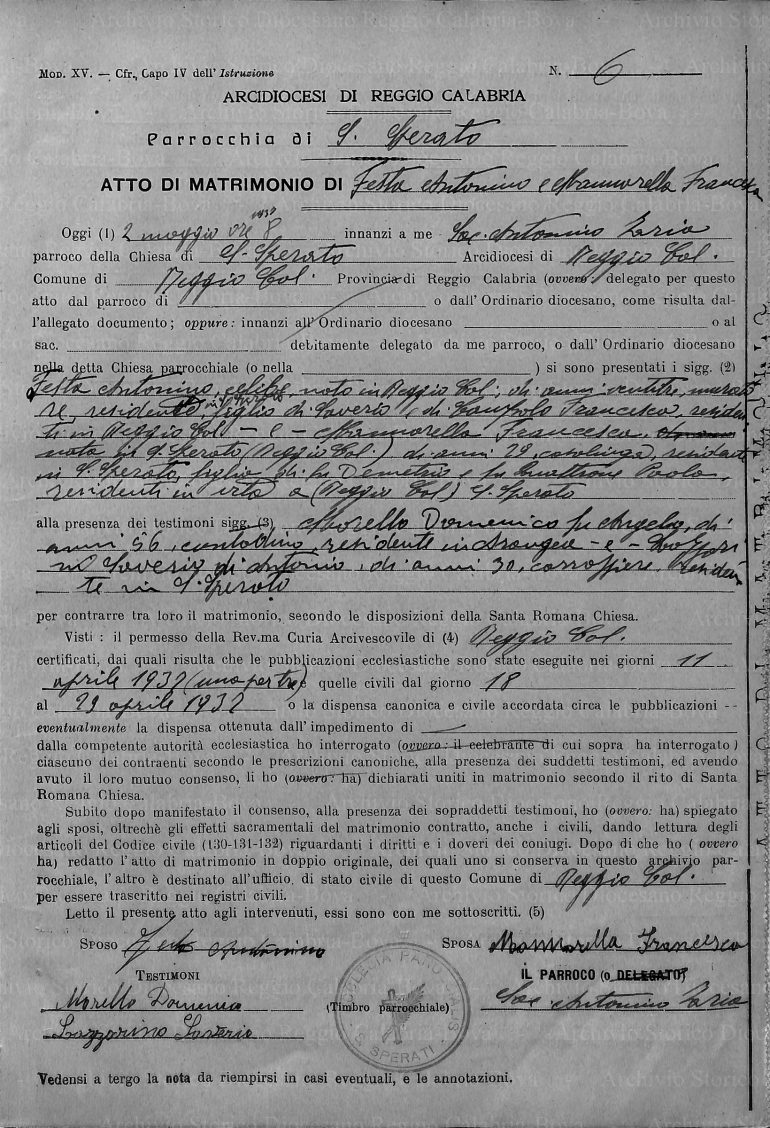 Archivio Storico Diocesano Reggio Calabria-Bova
MOD. XV. — Cfr., Capo IV dell' Istruzione N. 6
ARCIDIOCESI DI REGGIO CALABRIA
Parrocchia di S. Sperato
ATTO DI MATRIMONIO DI Festa Antonino e Mammorella Francesca
Oggi (1) 2 maggio ore 8 innanzi a me Sac. Antonino Laria
parroco della Chiesa di S. Sperato Arcidiocesi di Reggio Cal.
Comune di Reggio Cal. Provincia di Reggio Calabria (ovvero: delegato per questo
atto dal parroco di o dall' Ordinario diocesano, come risulta dal-
l'allegato documento; oppure: innanzi all' Ordinario diocesano o al
sac. debitamente delegato da me parroco, o dall' Ordinario diocesano
nella detta Chiesa parrocchiale (o nella ) si sono presentati i sigg. (2)
Festa Antonino, celibe, nato in Reggio Cal; di anni ventitre, murato
re, residente, figlio di Saverio e di Francesca, residen
ti in Reggio Cal - e - Mammorella Francesca,
nata in S. Sperato (Reggio Cal.) di anni 22, casalinga, residente
in S. Sperato, figlia di fu Demetrio e fu Quattrone Paola,
residenti in vita a (Reggio Cal) S. Sperato
alla presenza dei testimoni sigg. (3) Morello Domenico fu Angelo, di
anni 56, contadino, residente in Arangea - e - Lazzari
no Saverio di Antonio, di anni 30, carrozziere, residen
te in S. Sperato
per contrarre tra loro il matrimonio, secondo le disposizioni della Santa Romana Chiesa.
Visti : il permesso della Rev.ma Curia Arcivescovile di (4) Reggio Cal.
certificati, dai quali risulta che le pubblicazioni ecclesiastiche sono state eseguite nei giorni 11
aprile 1932 e quelle civili dal giorno 18
al 29 aprile 1932 o la dispensa canonica e civile accordata circa le pubblicazioni --
eventualmente la dispensa ottenuta dall'impedimento di
dalla competente autorità ecclesiastica ho interrogato (ovvero: il celebrante di cui sopra ha interrogato)
ciascuno dei contraenti secondo le prescrizioni canoniche, alla presenza dei suddetti testimoni, ed avendo
avuto il loro mutuo consenso, li ho (ovvero: ha) dichiarati uniti in matrimonio secondo il rito di Santa
Romana Chiesa.
Subito dopo manifestato il consenso, alla presenza dei sopraddetti testimoni, ho (ovvero: ha) spiegato
agli sposi, oltrechè gli effetti sacramentali del matrimonio contratto, anche i civili, dando lettura degli
articoli del Codice civile (130-131-132) riguardanti i diritti e i doveri dei coniugi. Dopo di che ho ( ovvero
ha) redatto l'atto di matrimonio in doppio originale, dei quali uno si conserva in questo archivio par-
rocchiale, l'altro è destinato all'ufficio di stato civile di questo Comune di Reggio Cal.
per essere trascritto nei registri civili.
Letto il presente atto agli intervenuti, essi sono con me sottoscritti. (5)
SPOSO Festa Antonino SPOSA Mammorella Francesca
TESTIMONI IL PARROCO (o DELEGATO)
Morello Domenico (Timbro parrocchiale) Sac Antonino Laria
Lazzarino Saverio
S. SPERATI
Vedensi a tergo la nota da riempirsi in casi eventuali, e le annotazioni.